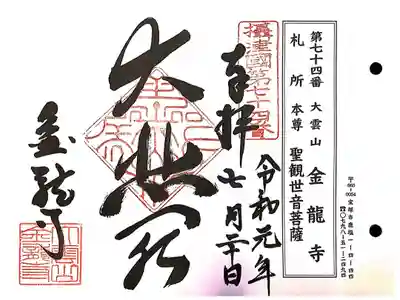 第七十四番 大雲山 金龍寺
札所 本尊 聖観世音菩薩
☎〇七九八-五一-二四九四
攝津國第七十四番
奉拝
令和元年
七月二十日
大悲
金龍寺